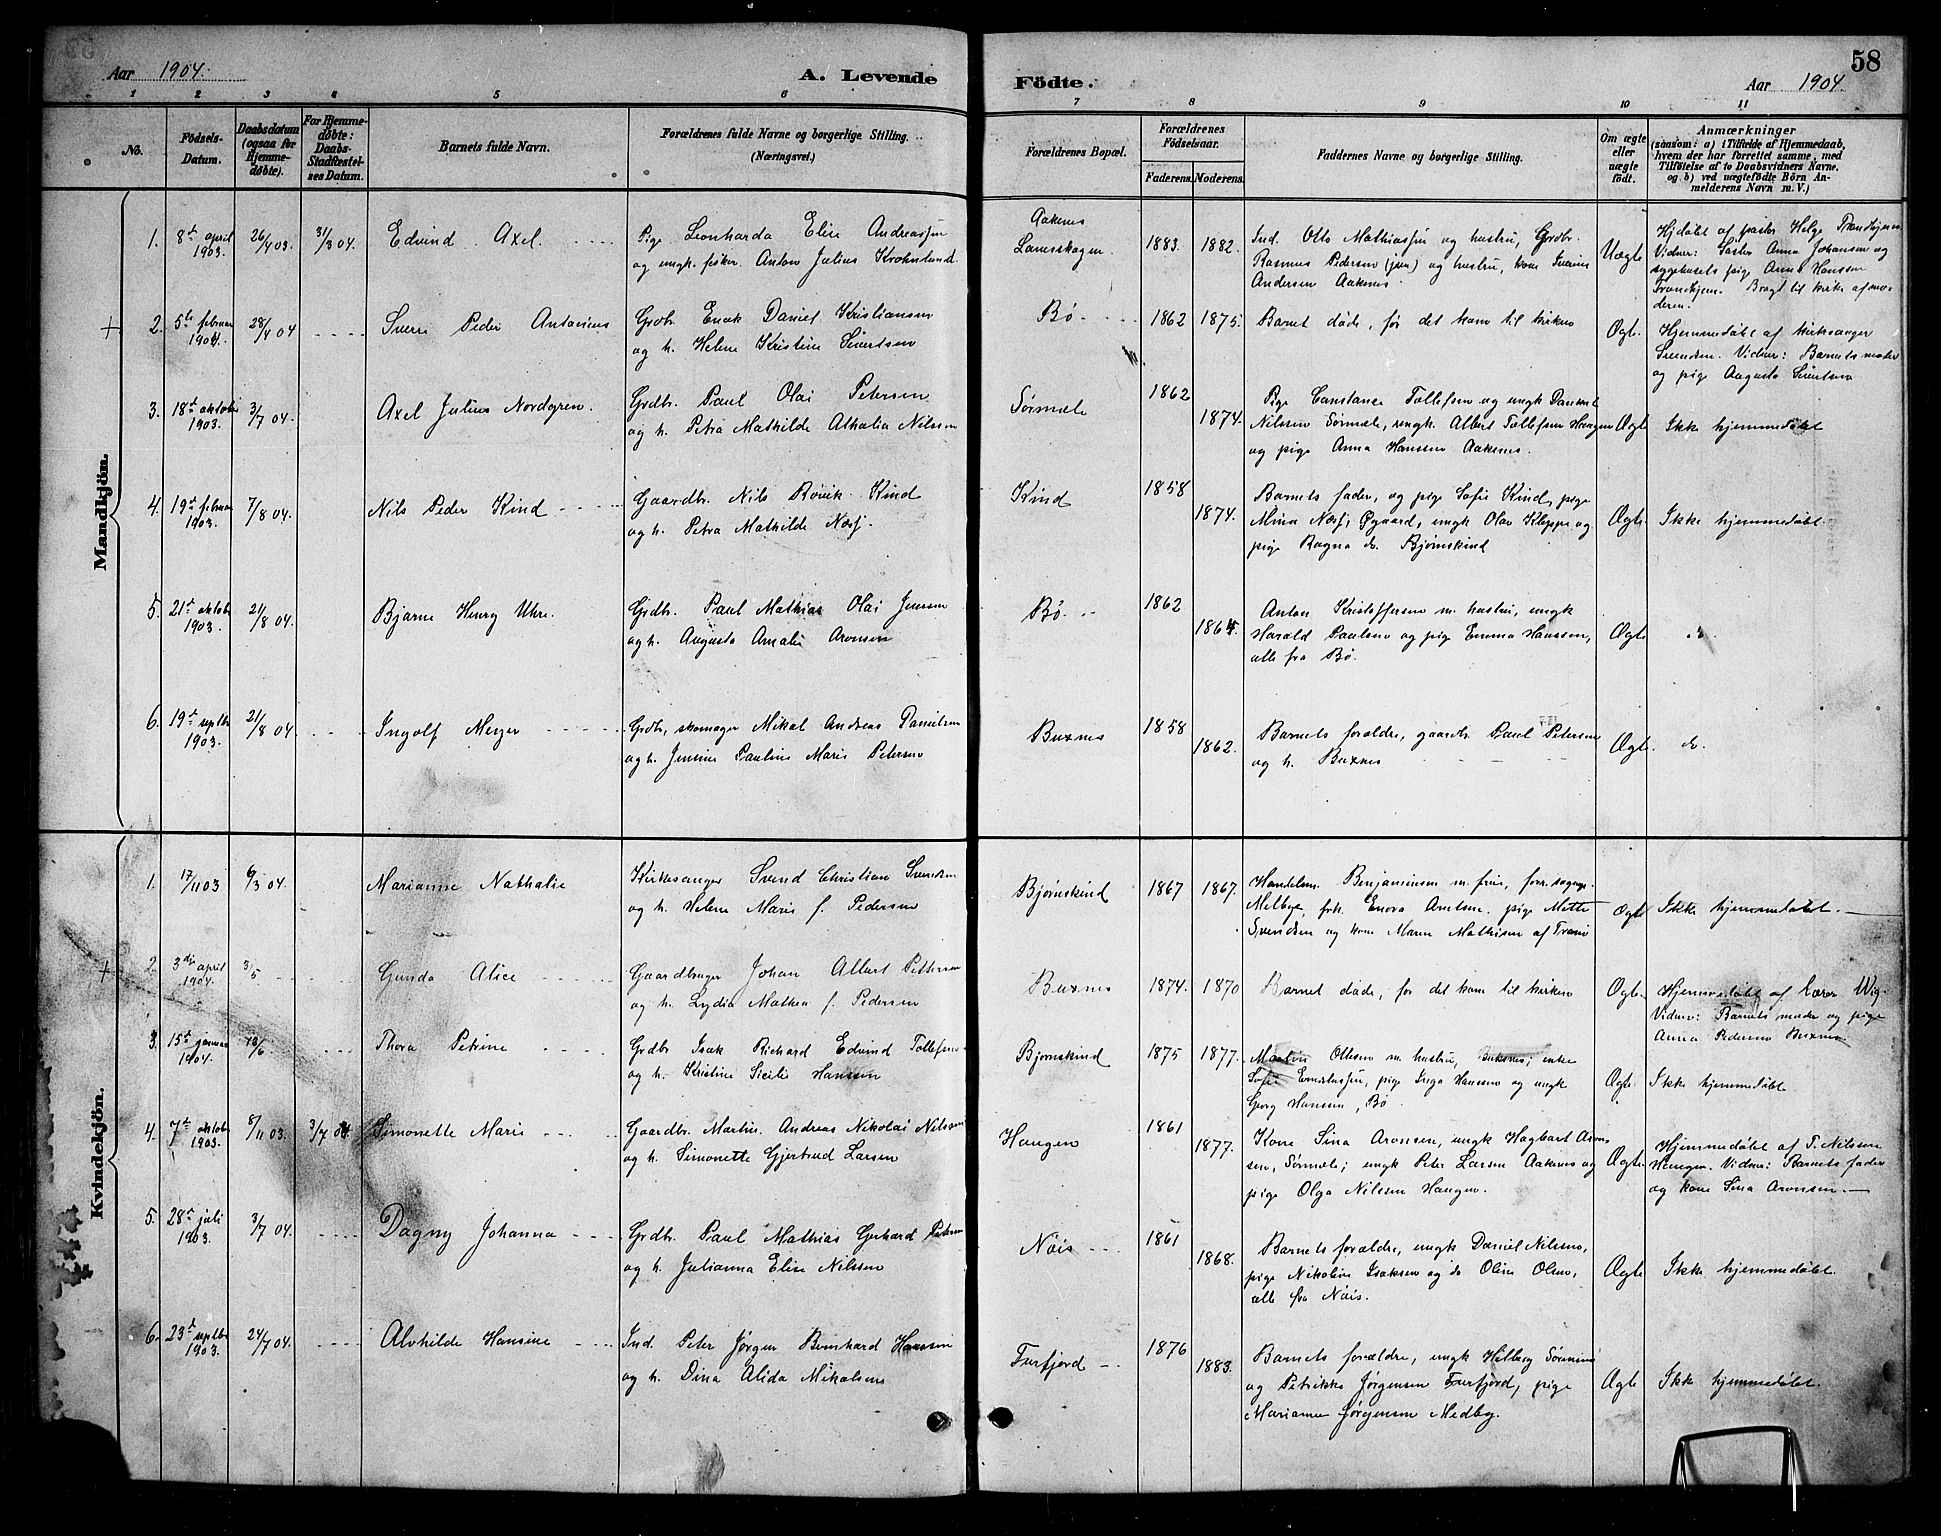 58
Aar 1904.
A. Levende
Födte.
Aar 1904.
1 2 3 4 5 6 7 8 9 10 11
No.
Födsels-
Datum.
Daabsdatum
(ogsaa for
Hjemme-
døbte).
For Hjemme-
døbte:
Daabs-
Stadfæstel-
ses Datum.
Barnets fulde Navn.
Forældrenes fulde Navne og borgerlige Stilling.
(Næringsvei.)
Forældrenes Bopæl.
Forældrenes
Födselsaar.
Faderens. Moderens.
Faddernes Navne og borgerlige Stilling.
Om ægte
eller
uægte
födt.
Anmærkninger
(saasom: a) i Tilfælde af Hjemmedaab,
hvem der har forrettet samme, med
Tilföielse af to Daabsvidners Navne,
og b) ved uægtefödte Börn An-
melderens Navn m. V.)
Mandkjön.
1. 8de april 1903. 26/4 03. 31/3 04. Edvind Axel.
Pige Leonharda Elise Andreassen
og ungk. fisker Anton Julius Krohnlund.
Aakenes
Lanesskogen 1883. 1882.
Ind. Otto Mathiassen og hustru, Grdbr.
Rasmus Pedersen (jun) og hustru, kone
Andersen Aakenes.
Uægte
Hjdøbt af præst Helge Trondhjem
Vidner: Søster Anna Johansen og
sygehusets pige Anna Hanssen
Trondhjem. Bragt til kirke af mo-
deren.
+ 2. 5te februar 1904. 28/4 04 Sverre Peder Antonius
Grdbr. Enok Daniel Kristiansen
og h. Helene Kristine Sivertsen
Bø 1862 1875.
Barnet døde, før det kom til kirken
Ægte.
Hjemmedøbt af kirksanger
Svendsen. Vidner: Barnets moder
og pige Augusta Sivertsen
3. 18de oktober 1903. 3/7 04. Axel Julius Nordgren.
Grdbr. Paul Olai Petersen
og h. Petra Mathilde Athalia Nilssen
Sørmæle 1862 1874.
Pige Constance Tollefsen og ungk Daniel
Nilssen Sørmæle, ungk. Albert Tollefsen Haugen
og pige Anna Hanssen Aakenes.
Ægte
Ikke hjemmedøbt
4. 19de februar 1903. 7/8 04. Nils Peder Kind
Gaardbr. Nils Rørvik Kind
og h. Petra Mathilde Næsj.
Kind 1858 1874.
Barnets fader, og pige Sofie Kind, pige
Mina Næsj, Øgaard, ungk Olav Kleppe og
pige Ragna do. Bjørnskind
Ægte
Ikke hjemmedøbt.
5. 21de oktober 1903. 21/8 04. Bjarne Henry Uhre.
Grdbr. Paul Mathias Olai Jenssen
og h. Augusta Amalie Aronsen
Bø 1862 1864.
Anton Kristoffersen m. hustru, ungk
Harald Paulsen og pige Emma Hanssen,
alle fra Bø.
Ægte
do.
6. 19de septbr 1903. 21/8 04 Ingolf Meyer
Grdbr, skomager Mikal Andreas Danielsen
og h. Jensine Pauline Marie Petersen
Buxnes 1858 1862.
Barnets forældre, gaardbr. Paul Petersen
og h. Buxnes
Ægte.
do.
Kvindekjön.
1. 17/11 03 6/3 04. Marianne Nathalie
Kirkesanger Svend Christian Svendsen
og h. Helene Marie f. Pedersen
Bjørnskind 1867 1867.
Handelsm. Benjaminsen m. frue,
Melbye, frk. Enova Arntsen, pige Mette
Svendsen og kone Maren Mathisen af Tranø
Ægte
Ikke hjemmedøbt.
+ 2. 3die april 1904. 3/5 Gunda Alice
Gaardbruger Johan Albert Pettersen
og h. Lydia Mathea f. Pedersen
Buxnes 1874. 1870
Barnet døde, før det kom til kirken
Ægte.
Hjemmedøbt af lærer Wig.
Vidner: Barnets moder og pige
Anna Pedersen Buxnes.
3. 15de januar 1904. Thora Petrine
Grdbr Isak Richard Edvind Tollefsen
og h. Kristine Sicilie Hanssen
Bjørnskind 1875 1877.
Martin Ottesen m. hustru, Buxnes; enke
Sofie, pige Inga Hanssen og ungk
Georg Hansen, Bø
Ægte.
Ikke hjemmedøbt.
4. 7de oktober 1903. 8/11 03. 3/7 04 Simonette Marie
Gaardbr. Martin Andreas Nikolai Nilssen
og h. Simonette Gjertrud Larsen
Haugen 1861 1877.
Kone Sina Aronsen, ungk Hagbart Aron-
sen, Sørmæle; ungk Peter Larsen Aakenes og
pige Olga Nilssen Haugen.
Ægte.
Hjemmedøbt af T. Nilssen
Haugen. Vidner: Barnets fader
og kone Sina Aronsen.
5. 28de juli 1903. 3/7 04. Dagny Johanna
Grdbr. Paul Mathias Gerhard Petersen
og h. Julianna Elise Nilssen
Nøis 1861 1868.
Barnets forældre, ungk Daniel Nilssen,
pige Nikoline Isaksen og do Oline Olsen,
alle fra Nøis.
Ægte
Ikke hjemmedøbt.
6. 23de septbr 1903. 24/7 04. Alvhilde Hansine
Ind. Peter Jørgen Bernhard Hanssen
og h. Dina Alida Mikalsen
Furfjord 1876 1883.
Barnets forældre, ungk Hilberg Sørensen
og Petrikke Jørgensen Furfjord, pige
Marianne Jørgensen Medby.
Ægte
Ikke hjemmedøbt.